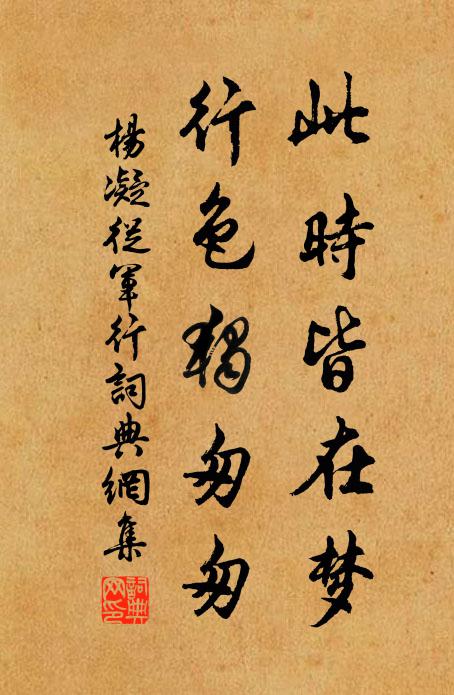 此時皆在梦
行色獨匆匆
楊凝從軍行詞典網集
詞典网印